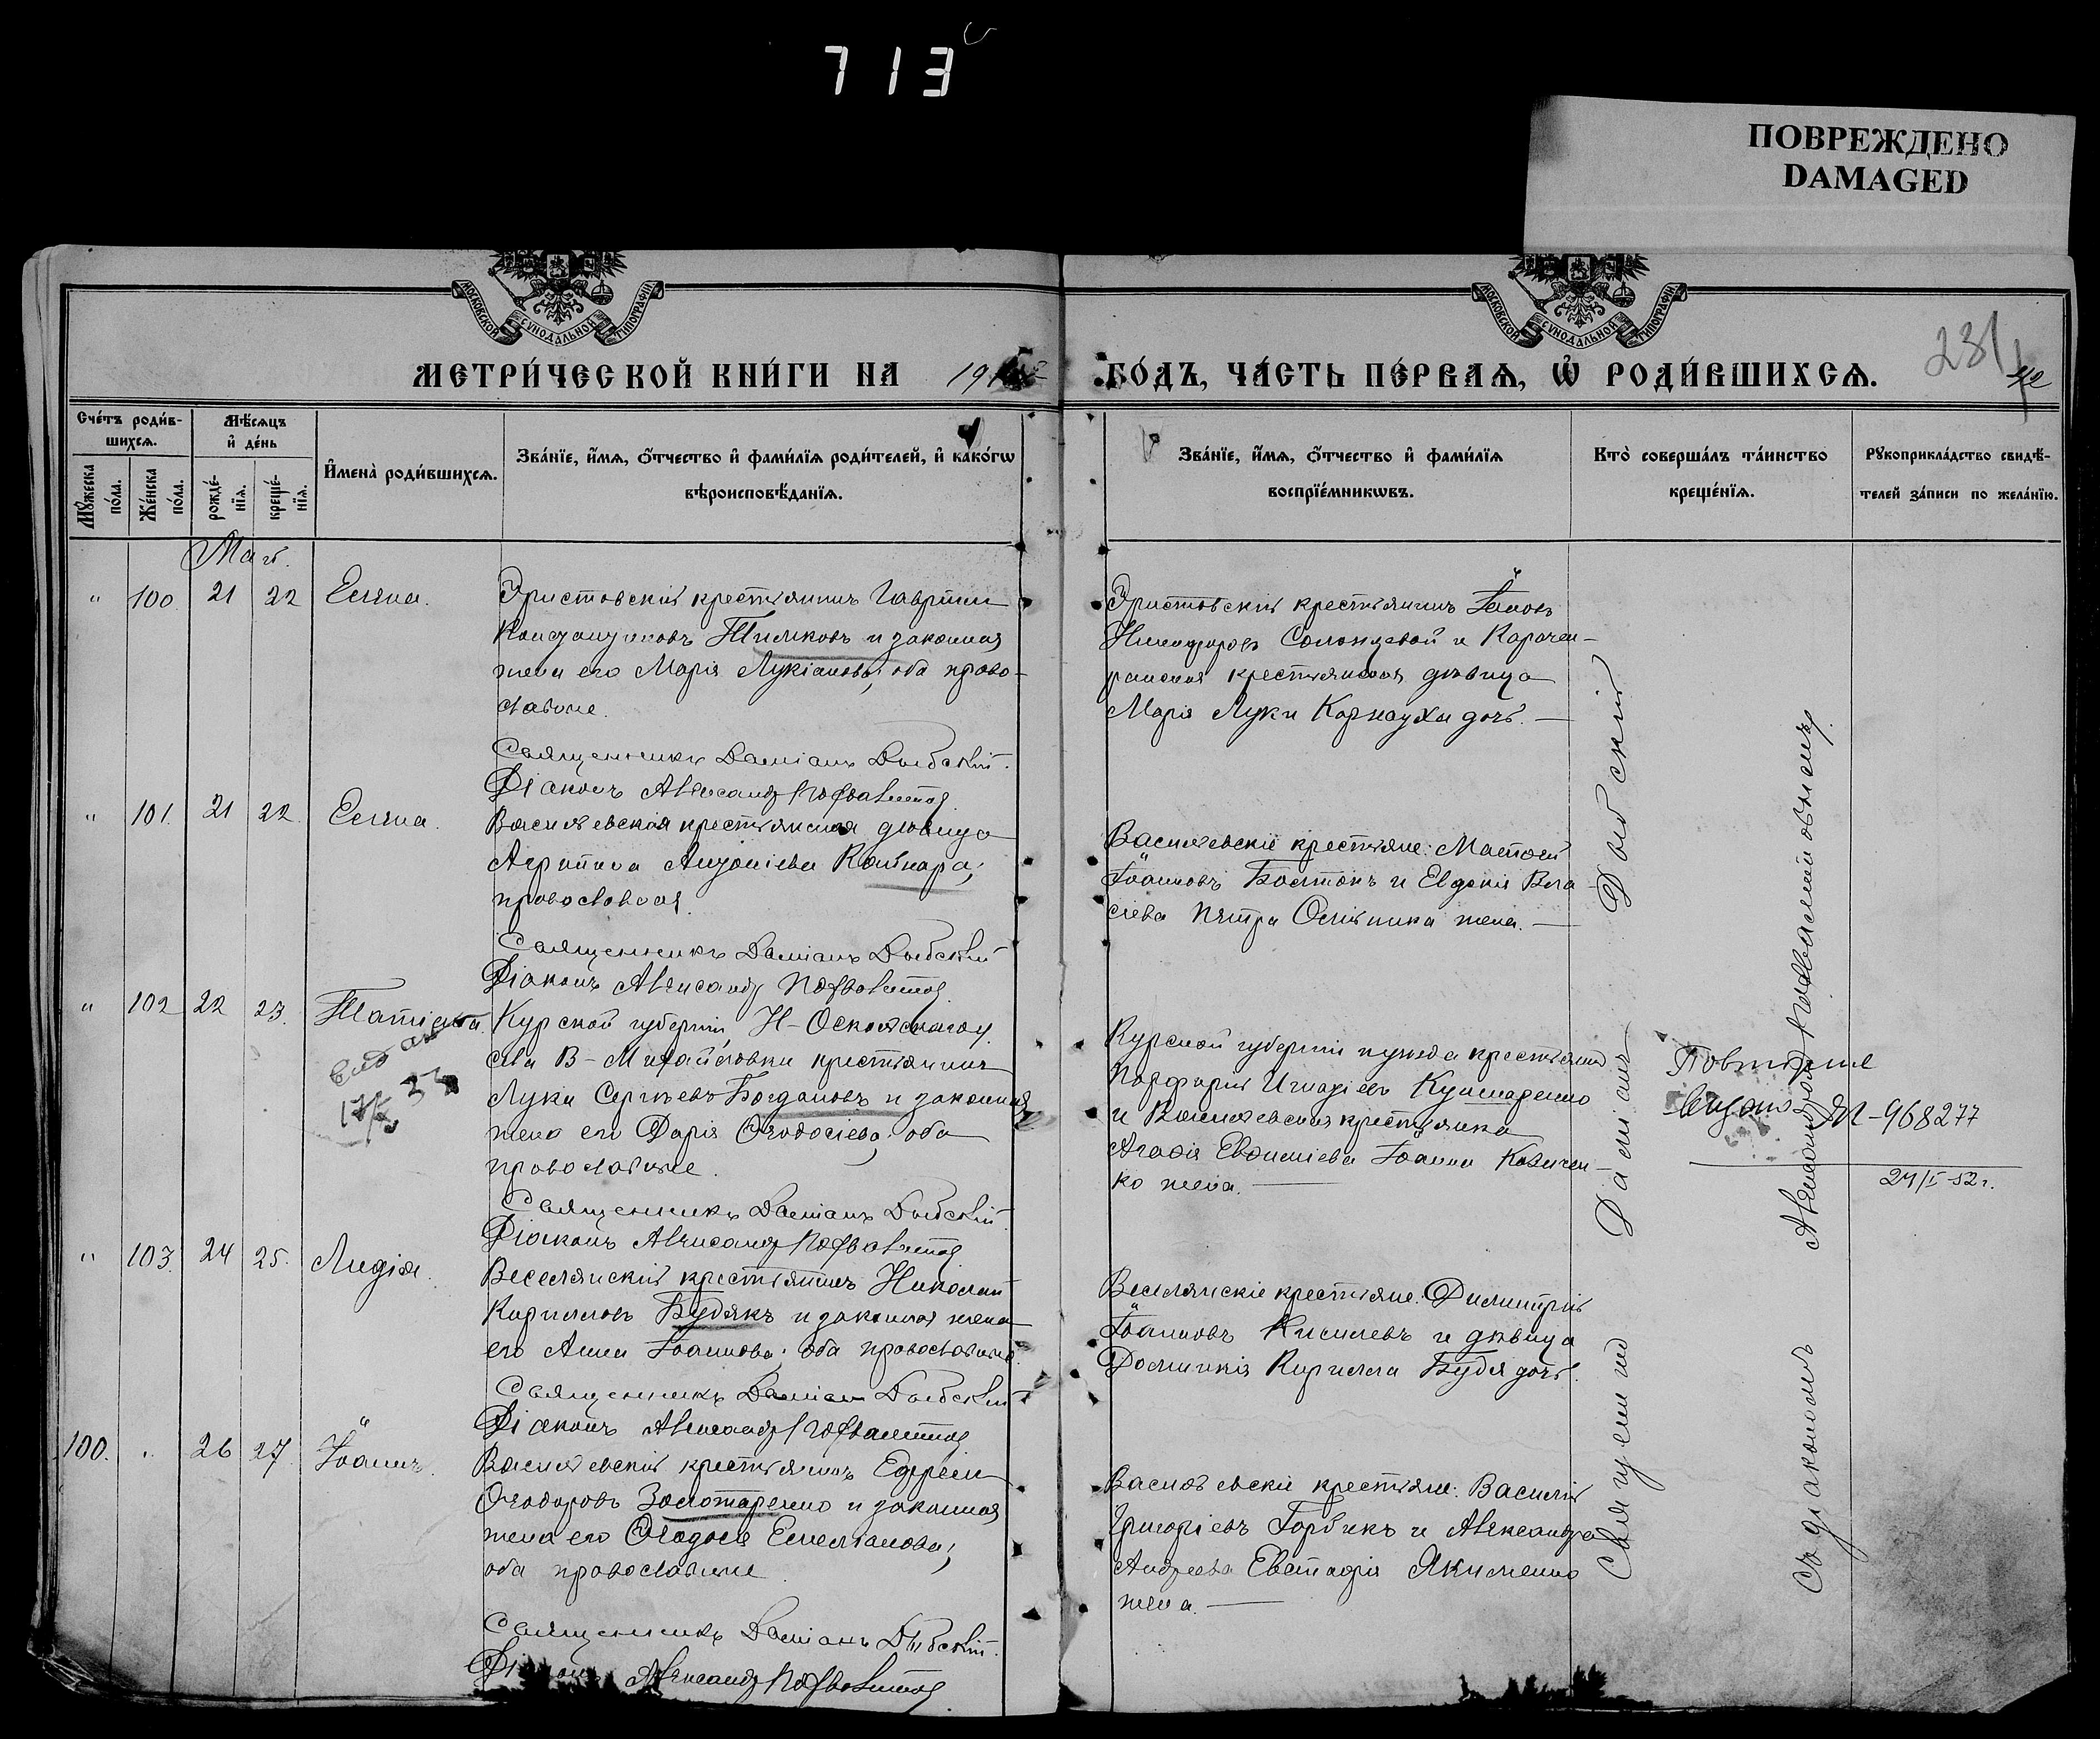 713
ПОВРЕЖДЕНО
DAMAGED
МОСКОВСКОЙ СѴНОДАЛЬНОЙ ТИПОГРАФІИ
МОСКОВСКОЙ СѴНОДАЛЬНОЙ ТИПОГРАФІИ
МЕТРИ́ЧЕСКОЙ КНИ́ГИ НА 19
ГО́ДЪ, ЧА́СТЬ ПЕ́РВАѦ, Ѡ҆ РОДИ́ВШИХСѦ.
231
Сче́тъ роди́в-
шихсѧ.
Мꙋ́жеска
по́ла.
Же́нска
по́ла.
Мѣ́сѧцъ
и҆ де́нь
рожде́-
нїѧ.
креще́-
нїѧ.
И҆мена̀ роди́вшихсѧ.
Зва́нїе, и҆́мѧ, ѻ҆́тчество и҆ фами́лїѧ роди́телей, и҆ како́гѡ
вѣроисповѣ́данїѧ.
Зва́нїе, и҆́мѧ, ѻ҆́тчество и҆ фами́лїѧ
воспрїе́мникѡвъ.
Кто̀ соверша́лъ та́инство
креще́нїѧ.
Рꙋкоприкла́дство свидѣ́-
телей за́писи по жела́нїю.
Май.
" 100. 21 22 Елена.
Эристовскій крестьянинъ Гавріилъ
Тимковъ и законная
жена его Марія Лукіанова; оба право-
славные.
Священникъ Даміанъ Дыбскій.
Діаконъ Александръ
Эристовскій крестьянинъ Іоаннъ
Никифоровъ Солонцевой и Карачек-
ранская крестьянская дѣвица
Марія Луки Карнауха дочь. —
" 101. 21 22. Елена.
Васильевская крестьянская дѣвица
Агрипина Антоніева
православная.
Священникъ Даміанъ Дыбскій
Діаконъ Александръ
Васильевскіе крестьяне: Матѳей
Іоанновъ Бастонъ и Евдокія Вла-
сіева Петра жена. —
" 102 22 23. Татіана.
Курской губерніи, Н-Оскольскаго у.
села В-Михайловки крестьянинъ
Лука Сергѣевъ Богдановъ и законная
жена его Дарія Ѳеодосіева; оба
православные.
Священникъ Даміанъ Дыбскій.
Діаконъ Александръ
Курской губерніи и уѣзда крестьянинъ
Порфирій Игнатіевъ Кушнаренко
и Васильевская крестьянка
Агаѳія Евѳиміева Іоанна
ко жена. —
Повторне
видано ЯІ-968277
24/I-52 г.
" 103. 24 25. Лидія.
Веселянскій крестьянинъ Николай
Кирилловъ Будякъ и законная жена
его Анна Іоаннова; оба православные.
Священникъ Даміанъ Дыбскій
Діаконъ Александръ
Веселянскіе крестьяне: Димитрій
Іоанновъ Киселевъ и дѣвица
Домникія Кирилла Будя дочь.
100. " 26 27. Іоаннъ.
Васильевскій крестьянинъ Ефремъ
Ѳеодоровъ Золотаренко и законная
жена его Ѳеодосія Емеліанова;
оба православные.
Священникъ Даміанъ Дыбскій.
Діаконъ Александръ
Васильевскіе крестьяне: Василій
Григоріевъ Горбикъ и Александра
Андреева Евстафія Якименко
жена. —
Священникъ Даміанъ Дыбскій
Съ діакономъ Александромъ